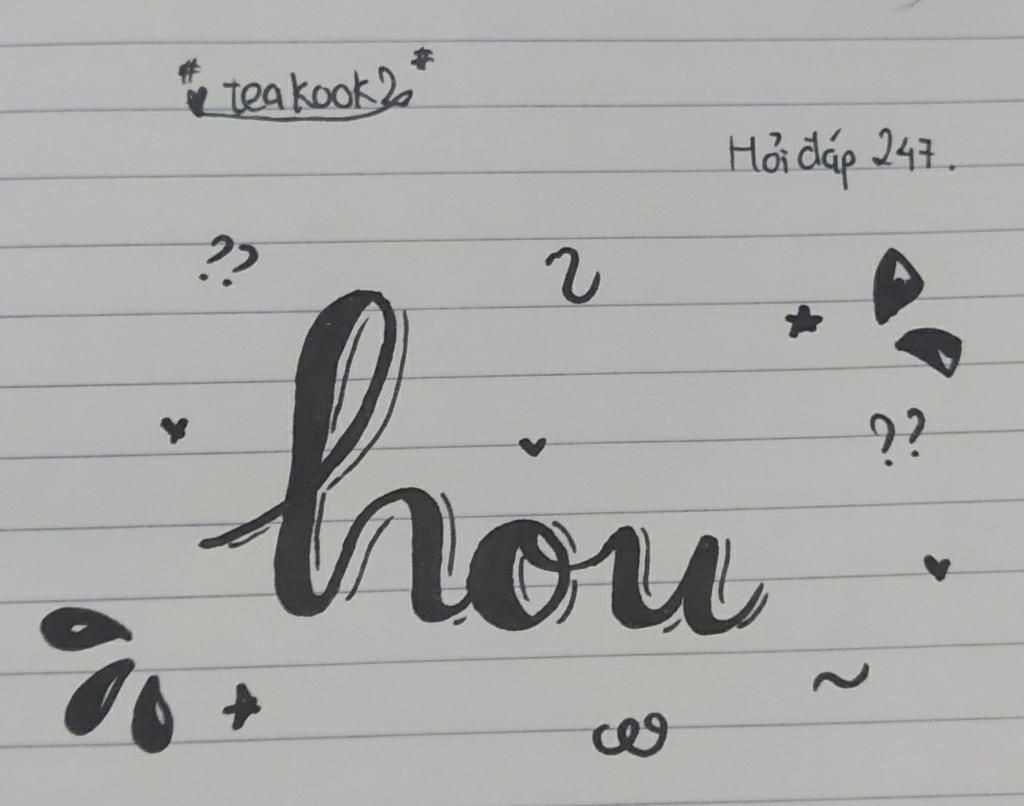 teakook2
Hỏi đáp 247.
??
hou
??
~